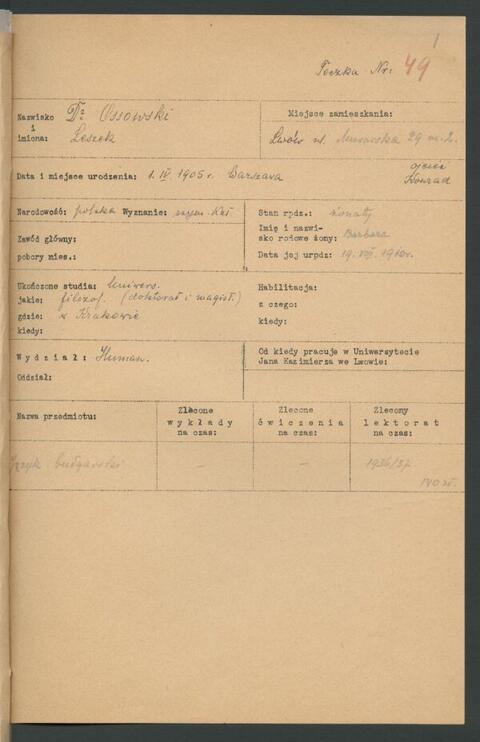 1
Teczka Nr: 49
Nazwisko i imiona: Dr Ossowski Leszek
Miejsce zamieszkania:
Lwów ul. 29 m. 2.
Data i miejsce urodzenia: 1. IV 1905 r. Warszawa
ojciec Konrad
Narodowość: polska Wyznanie: rzym.-kat
Stan rpdz.: żonaty
Imię i nazwi-
sko rodowe żony: Barbara
Data jej urpdz: 19. VII. 1910r.
Zawód główny:
pobory mies.:
Ukończone studia: Uniwers.
jakie: filozof. (doktorat i magist.)
gdzie: w Krakowie
kiedy:
Habilitacja:
z czego:
kiedy:
Wydział: Human.
Oddział:
Od kiedy pracuje w Uniwersytecie
Jana Kazimierza we Lwowie:
Nazwa przedmiotu:
Zlecone wykłady na czas:
Zlecone ćwiczenia na czas:
Zlecony lektorat na czas:
Język bułgarski - - 1936/37